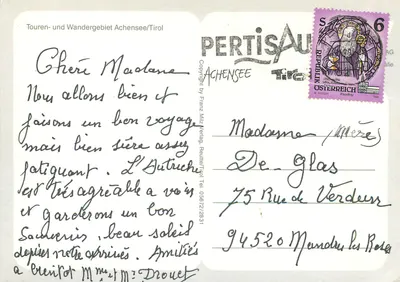 Touren- und Wandergebiet Achensee/Tirol
Chère Madame
Nous allons bien et
faisons un bon voyage
mais bien sûre assez
fatiguant. L'Autriche
est très agréable a voir
et garderons un bon
Souvenir, beau soleil
depuis notre arrivée. Amitiés
a bientot Mme et Mr Drouet
Copyright by Franz Milz Verlag, Reutte/Tirol Tel. 05672/2631
PERTISAU
ACHENSEE TIROL
S 6
REPUBLIK
ÖSTERREICH
Madame
De-Glas
75 Rue de Verdun
94520 Mandres les Roses